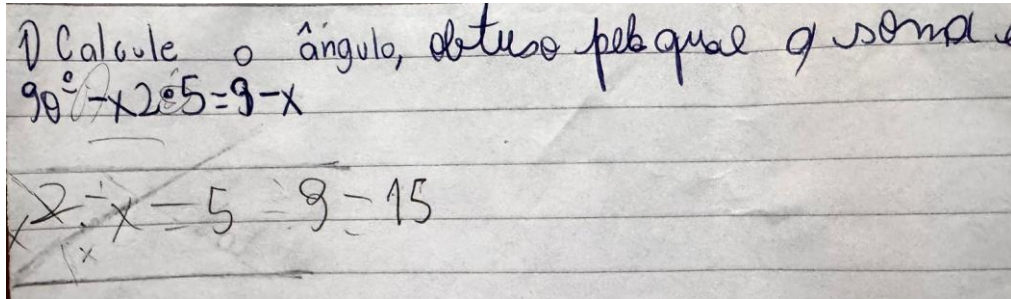 1) Calcule o ângulo, obtuso pelo qual a soma
90° - x2÷5=9-x
2 ÷ x - 5 = 9 - 15
x